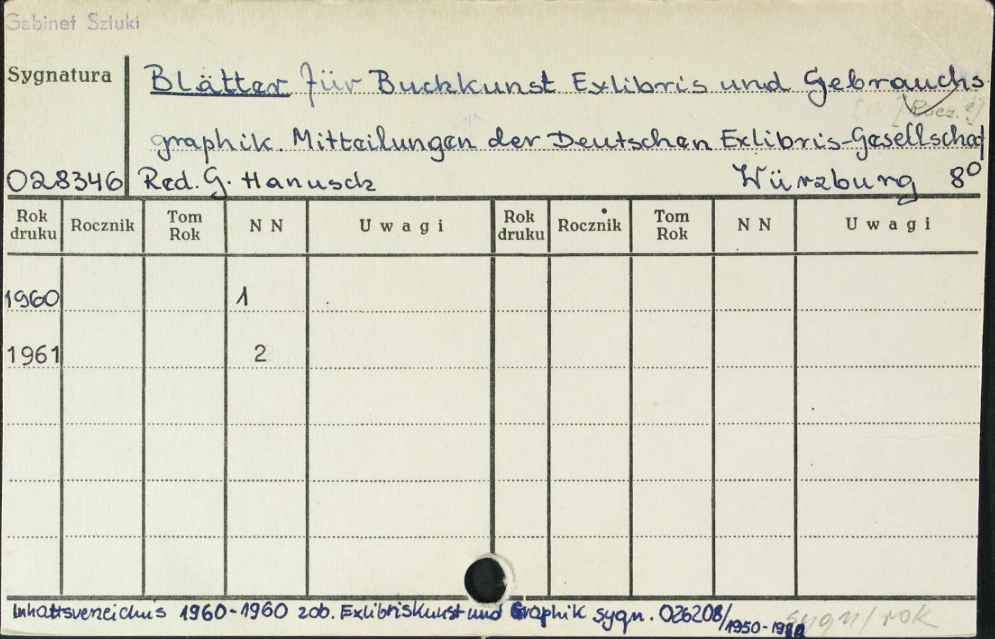 Gabinet Sztuki
Sygnatura
Blätter für Buchkunst Exlibris und Gebrauchs
[Rocz. 2]
graphik. Mitteilungen der Deutschen Exlibris-Gesellschaf
028346 Red. G. Hanusch Würzburg 8º
Rok druku Rocznik Tom Rok N N Uwagi Rok druku Rocznik Tom Rok N N Uwagi
1960 1
1961 2
Inhaltsverzeichnis 1960-1960 zob. Exlibriskunst und Graphik sygn. 026208/1950-1970 sygn/rok